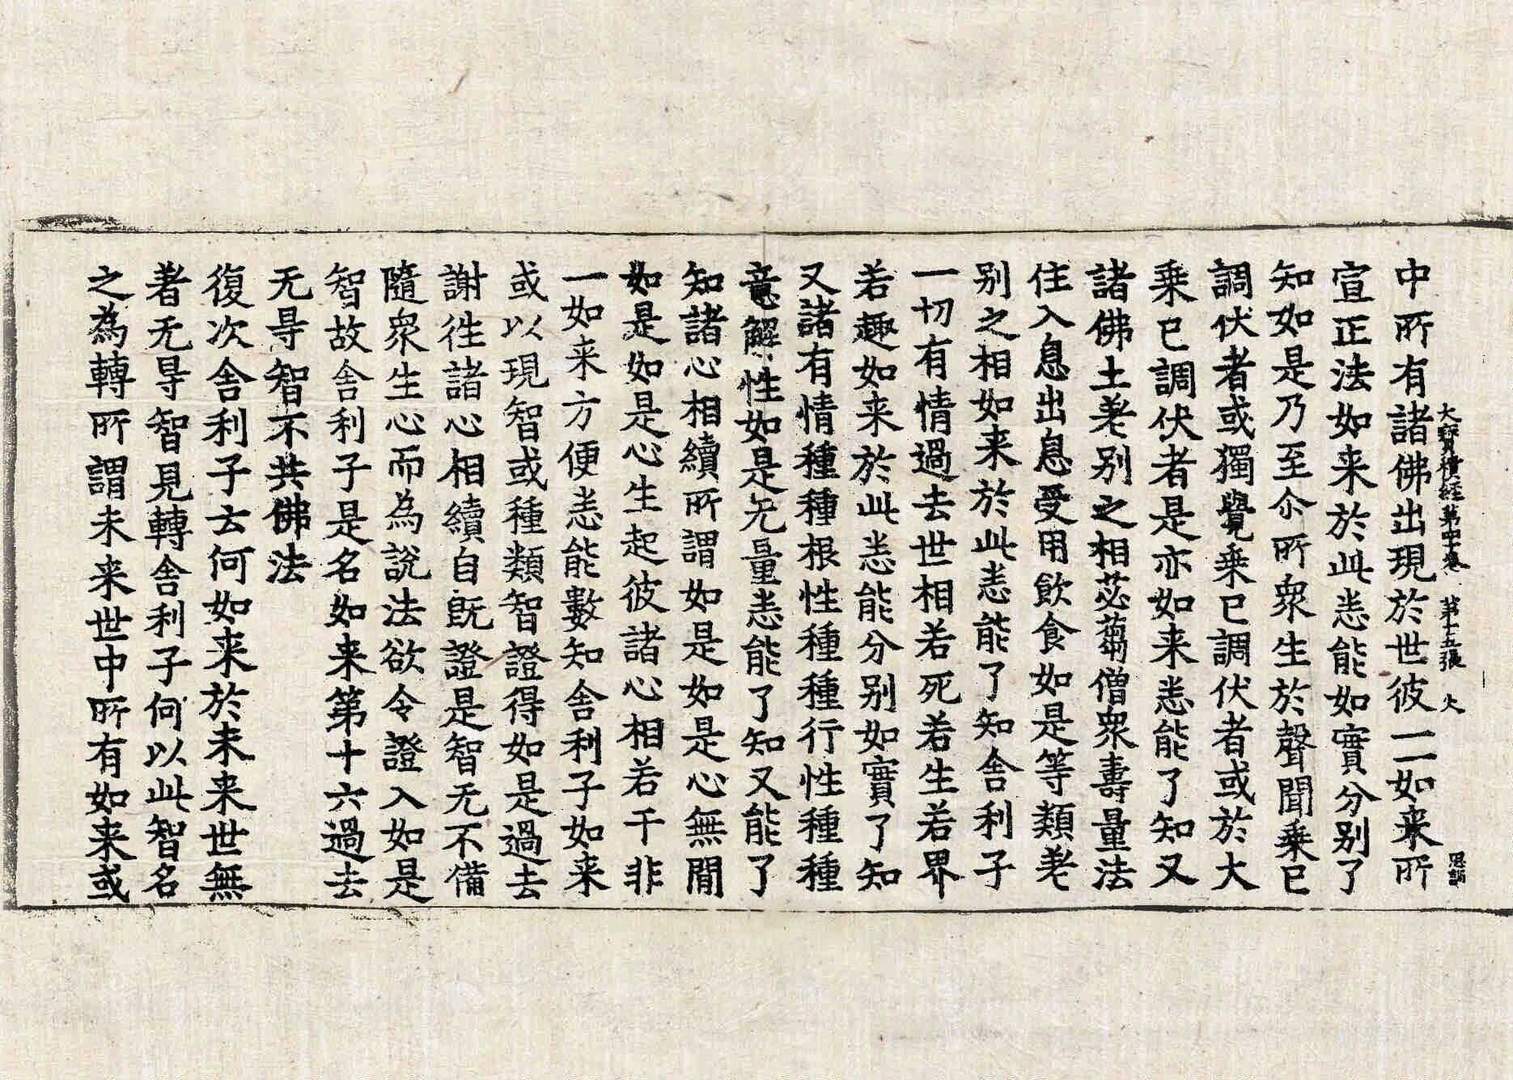 大寶積經第四十卷 第十五張 火
中所有諸佛出現於世彼一一如来所
宣正法如来於此悉能如實分别了
知如是乃至尒所衆生於聲聞乗已
調伏者或獨覺乗已調伏者或於大
乗已調伏者是亦如来悉能了知又
諸佛土差别之相苾蒭僧衆壽量法
住入息出息受用飲食如是等類差
别之相如来於此悉能了知舎利子
一切有情過去世相若死若生若界
若趣如来於此悉能分别如實了知
又諸有情種種根性種種行性種種
意解性如是无量悉能了知又能了
知諸心相續所謂如是如是心無閒
如是如是心生起彼諸心相若干非
一如来方便悉能數知舎利子如来
或以現智或種類智證得如是過去
謝徃諸心相續自旣證是智无不備
隨衆生心而為說法欲令證入如是
智故舎利子是名如来第十六過去
无㝵智不共佛法
復次舎利子云何如来於未来世無
著无㝵智見轉舎利子何以此智名
之為轉所謂未来世中所有如来或